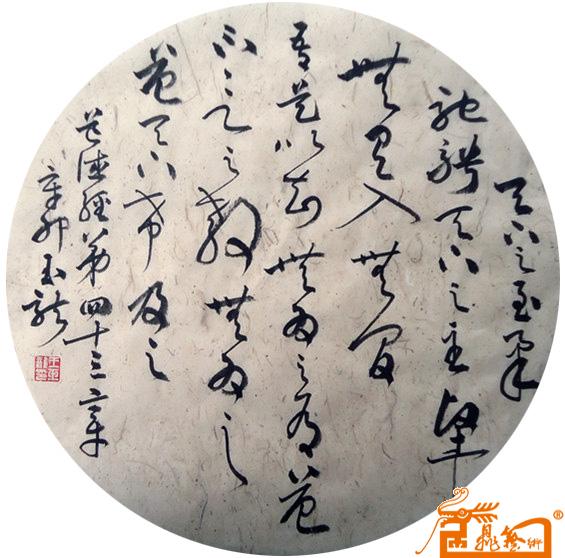 天下之至柔
馳騁天下之至堅
無有入無間
吾是以知無為之有益
不言之教無為之
益天下希及之
道德經第四十三章
辛卯玉龍